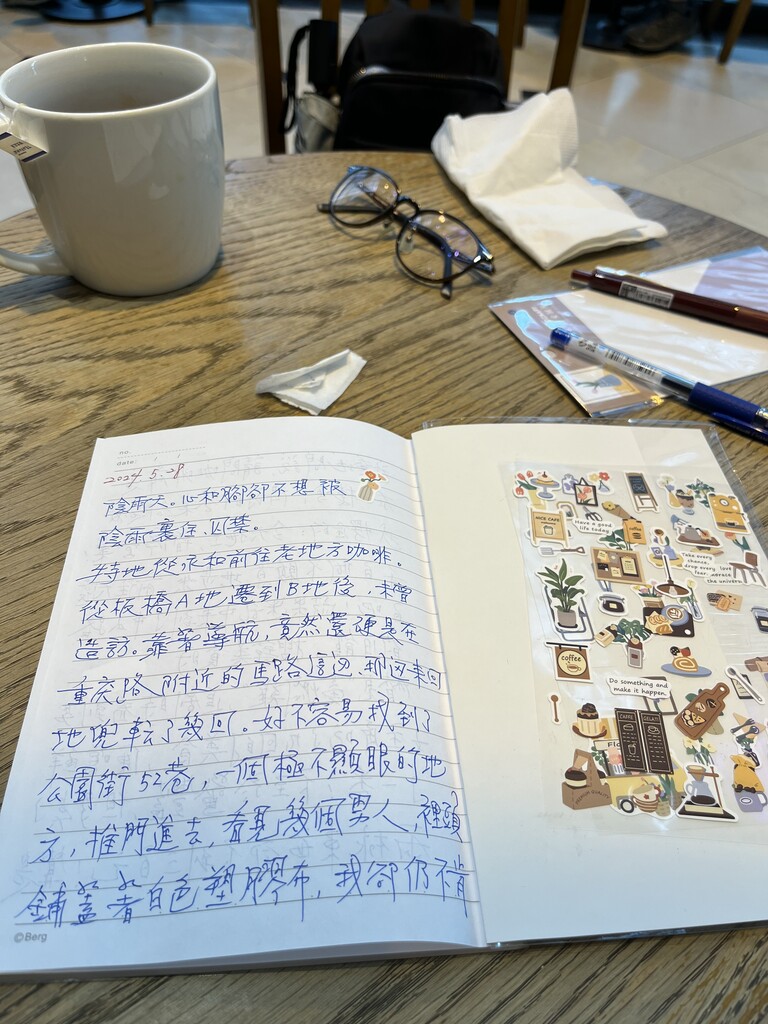 no.
date: / /
2024.5.28
陰雨天。心和腳卻不想被
陰雨裹住、囚禁。
特地從永和前往老地方咖啡。
從板橋A地遷到B地後,未曾
造訪。靠著導航,竟然還硬是在
重慶路附近的馬路這邊、那邊來回
地兜轉了幾回。好不容易找到了
公園街52巷,一個極不顯眼的地
方,推門進去,看見幾個男人,裡頭
鋪蓋著白色塑膠布,我卻仍不肯
©Berg
NICE CAFE
Have a good
life today.
Take every
chance,
drop every
fear.
love
the universe
coffee
Do something and
make it happen.
CAFFE
GELATI
Flo